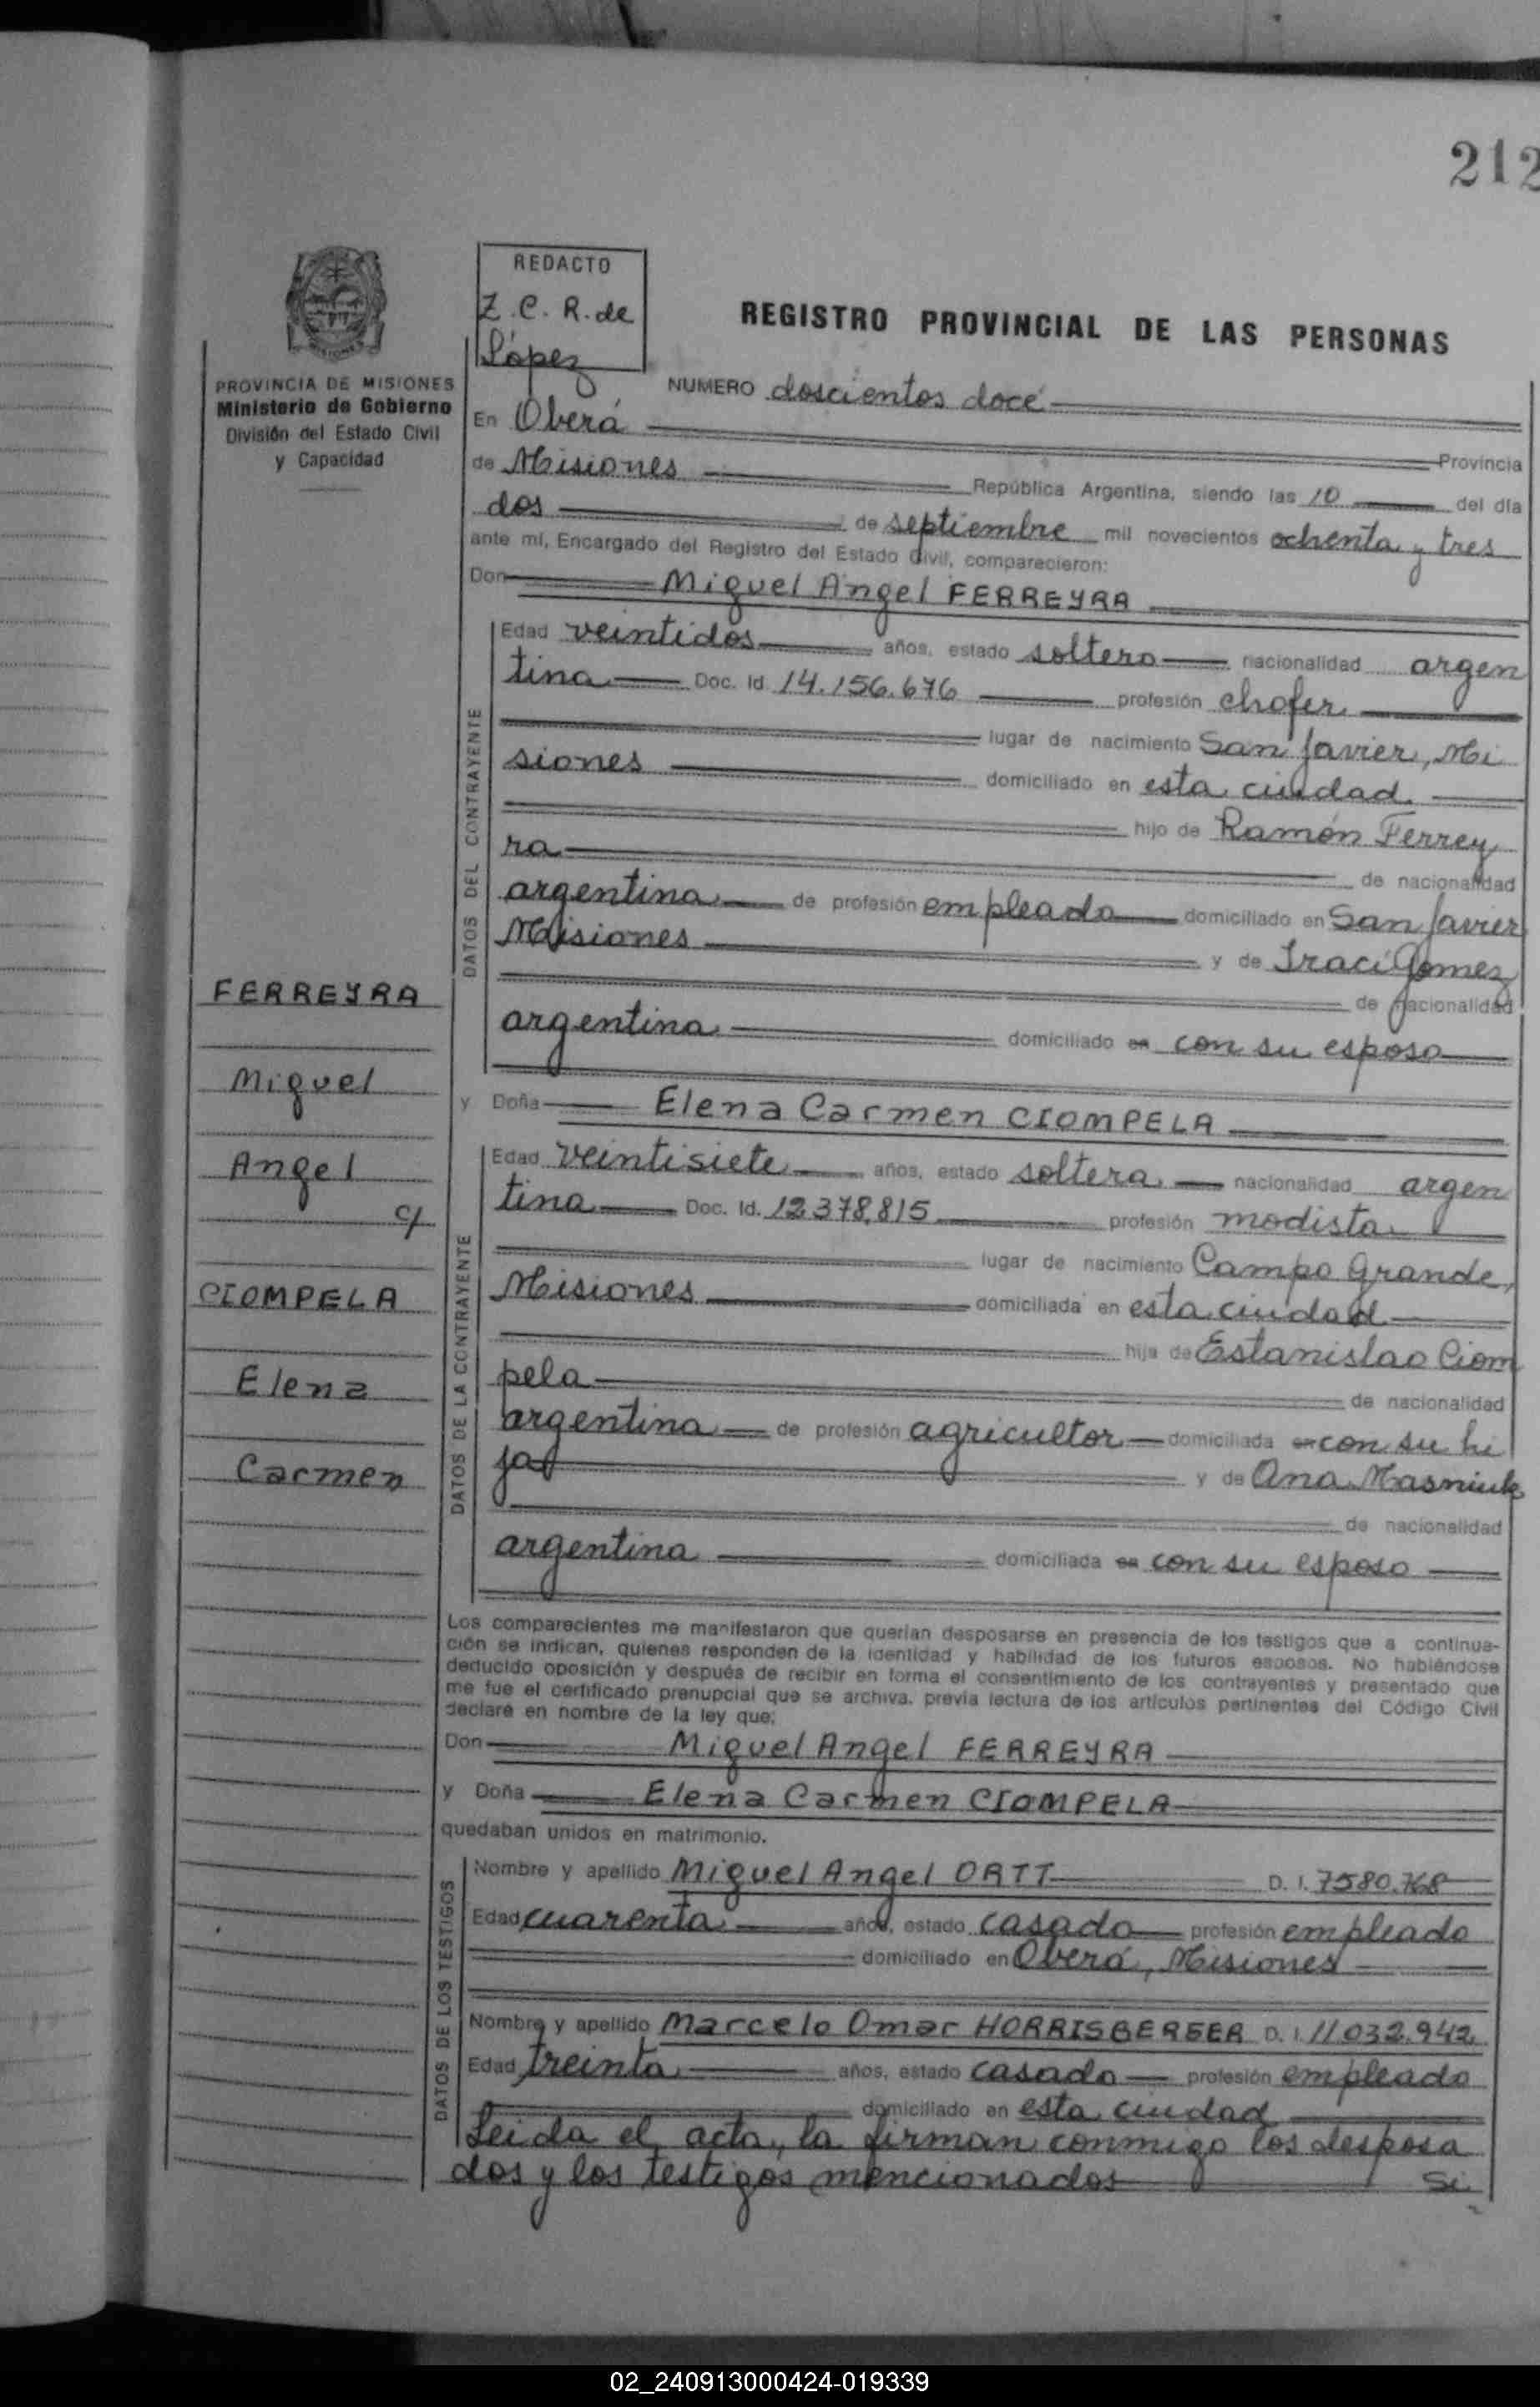 212
REDACTO
Z. C. R. de
López
REGISTRO PROVINCIAL DE LAS PERSONAS
PROVINCIA DE MISIONES
Ministerio de Gobierno
División del Estado Civil
y Capacidad
NUMERO doscientos doce
En Oberá
Provincia
de Misiones República Argentina, siendo las 10 del día
dos de septiembre mil novecientos ochenta y tres
ante mí, Encargado del Registro del Estado Civil, comparecieron:
Don Miguel Angel FERREYRA
DATOS DEL CONTRAYENTE
Edad veintidos años, estado soltero nacionalidad argen
tina Doc. Id. 14.156.676 profesión chofer
lugar de nacimiento San Javier, Mi
siones domiciliado en esta ciudad.
hijo de Ramón Ferrey
ra de nacionalidad
argentina de profesión empleado domiciliado en San Javier
Misiones y de Iraci Gomez
de nacionalidad
argentina domiciliado en con su esposo
FERREYRA
Miguel
Angel
c/
CIOMPELA
Elena
Carmen
y Doña Elena Carmen CIOMPELA
DATOS DE LA CONTRAYENTE
Edad veintisiete años, estado soltera nacionalidad argen
tina Doc. Id. 12.378.815 profesión modista
lugar de nacimiento Campo Grande,
Misiones domiciliada en esta ciudad
hija de Estanislao Ciom
pela de nacionalidad
argentina de profesión agricultor domiciliada en con su hi
ja y de Ana Masniuk
de nacionalidad
argentina domiciliada en con su esposo
Los comparecientes me manifestaron que querían desposarse en presencia de los testigos que a continua-
ción se indican, quienes responden de la identidad y habilidad de los futuros esposos. No habiéndose
deducido oposición y después de recibir en forma el consentimiento de los contrayentes y presentado que
me fue el certificado prenupcial que se archiva, previa lectura de los artículos pertinentes del Código Civil
declaré en nombre de la ley que:
Don Miguel Angel FERREYRA
y Doña Elena Carmen CIOMPELA
quedaban unidos en matrimonio.
DATOS DE LOS TESTIGOS
Nombre y apellido Miguel Angel ORTT D. I. 7580.768
Edad cuarenta años, estado casado profesión empleado
domiciliado en Oberá, Misiones
Nombre y apellido Marcelo Omar HORRISBERGER D. I. 11.032.942
Edad treinta años, estado casado profesión empleado
domiciliado en esta ciudad
Leida el acta, la firman conmigo los desposa
dos y los testigos mencionados Si
02_240913000424-019339